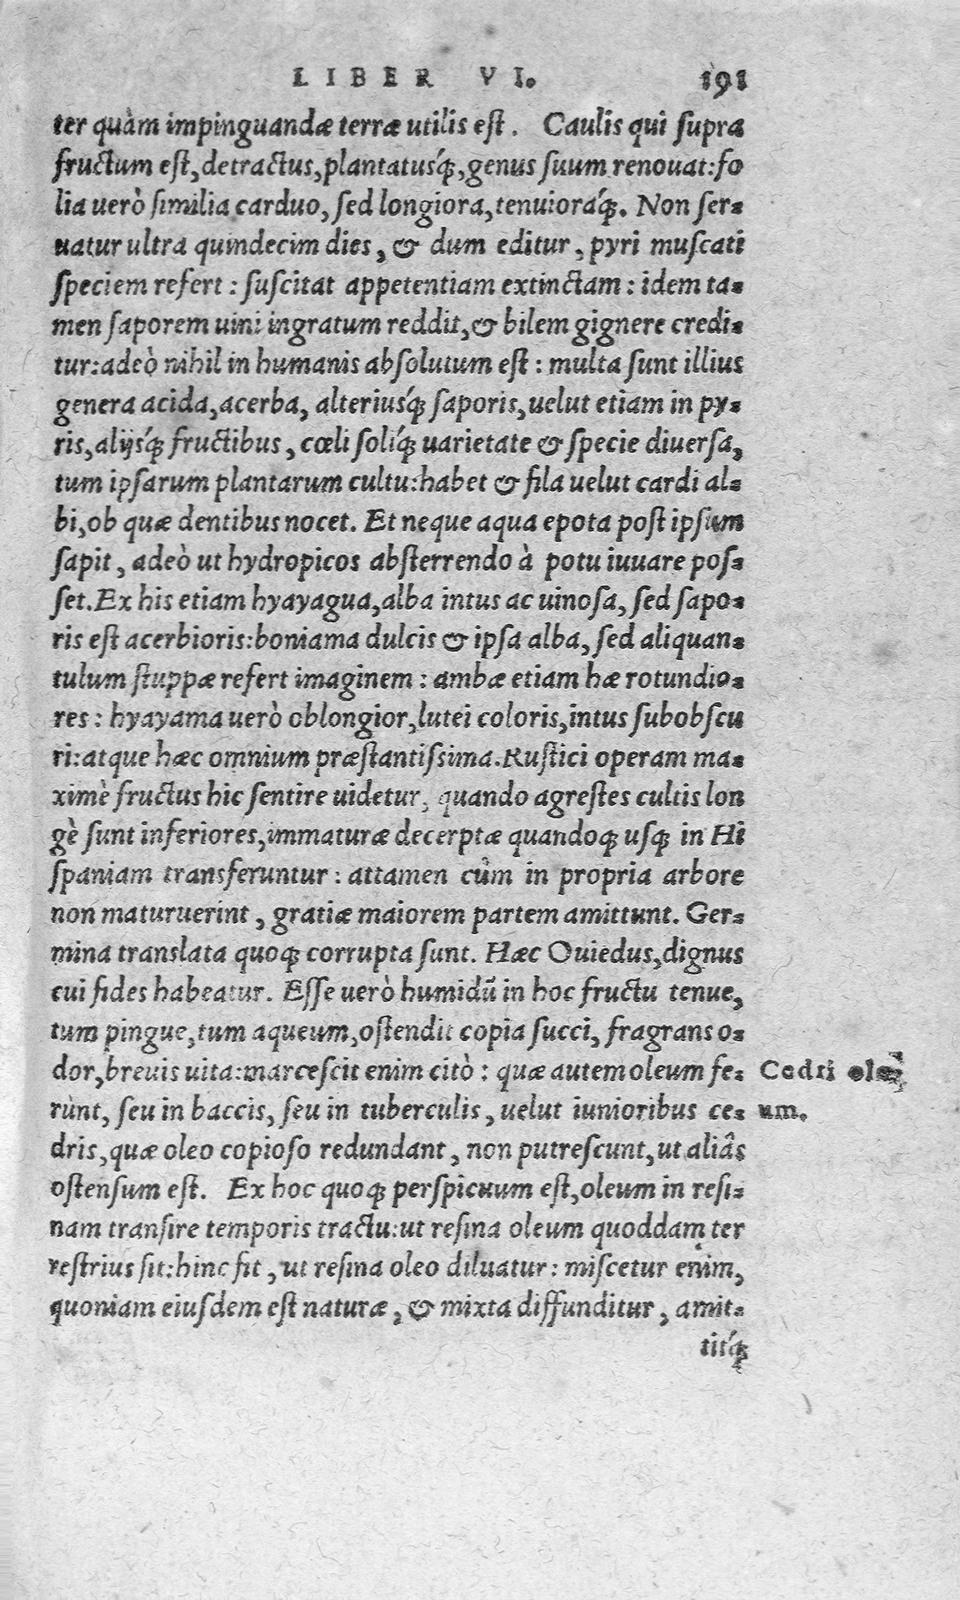 LIBER VI. 191
ter quàm impinguandæ terræ utilis est. Caulis qui supra
fructum est, detractus, plantatusq́;, genus suum renouat: fo
lia uerò similia carduo, sed longiora, tenuioraq́;. Non ser-
uatur ultra quindecim dies, & dum editur, pyri muscati
speciem refert: suscitat appetentiam extinctam: idem ta-
men saporem uini ingratum reddit, & bilem gignere credi-
tur: adeò nihil in humanis absolutum est: multa sunt illius
genera acida, acerba, alteriusq́; saporis, uelut etiam in py-
ris, alijsq́; fructibus, cœli soliq́; uarietate & specie diuersa,
tum ipsarum plantarum cultu: habet & fila uelut cardi al-
bi, ob quæ dentibus nocet. Et neque aqua epota post ipsum
sapit, adeò ut hydropicos absterrendo à potu iuuare pos-
set. Ex his etiam hyayagua, alba intus ac uinosa, sed sapo-
ris est acerbioris: boniama dulcis & ipsa alba, sed aliquan-
tulum stuppæ refert imaginem: ambæ etiam hæ rotundio-
res: hyayama uerò oblongior, lutei coloris, intus subobscu
ri: atque hæc omnium præstantissima. Rustici operam ma-
ximè fructus hic sentire uidetur, quando agrestes cultis lon
gè sunt inferiores, immaturæ decerptæ quandoq; usq; in Hi
spaniam transferuntur: attamen cùm in propria arbore
non maturuerint, gratiæ maiorem partem amittunt. Ger-
mina translata quoq; corrupta sunt. Hæc Ouiedus, dignus
cui fides habeatur. Esse uerò humidū in hoc fructu tenue,
tum pingue, tum aqueum, ostendit copia succi, fragrans o-
dor, breuis uita: marcescit enim citò: quæ autem oleum fe- Cedri ole-
runt, seu in baccis, seu in tuberculis, uelut iunioribus ce- um.
dris, quæ oleo copioso redundant, non putrescunt, ut aliâs
ostensum est. Ex hoc quoq; perspicuum est, oleum in resi-
nam transire temporis tractu: ut resina oleum quoddam ter
restrius sit: hinc fit, ut resina oleo diluatur: miscetur enim,
quoniam eiusdem est naturæ, & mixta diffunditur, amit-
titq́;